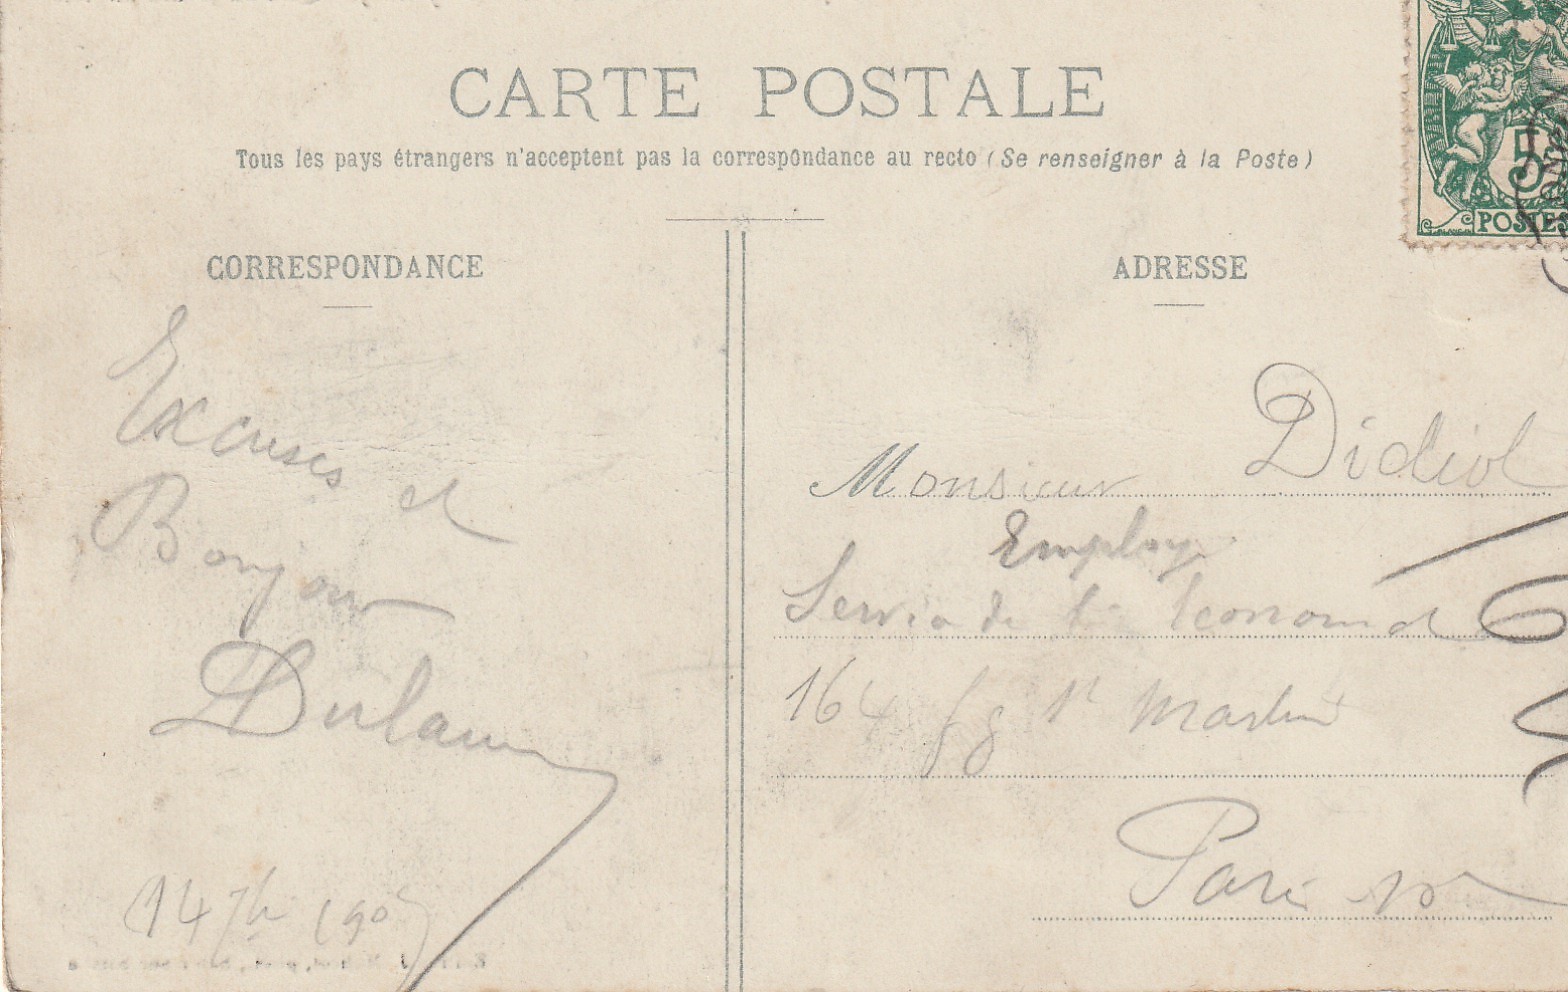 CARTE POSTALE
Tous les pays étrangers n'acceptent pas la correspondance au recto (Se renseigner à la Poste)
5
POSTES
CORRESPONDANCE
Excuses et
Bonjour
14 7bre 1905
ADRESSE
Monsieur Didiol
Employ
Service de l'
164 fg St Martin
Paris